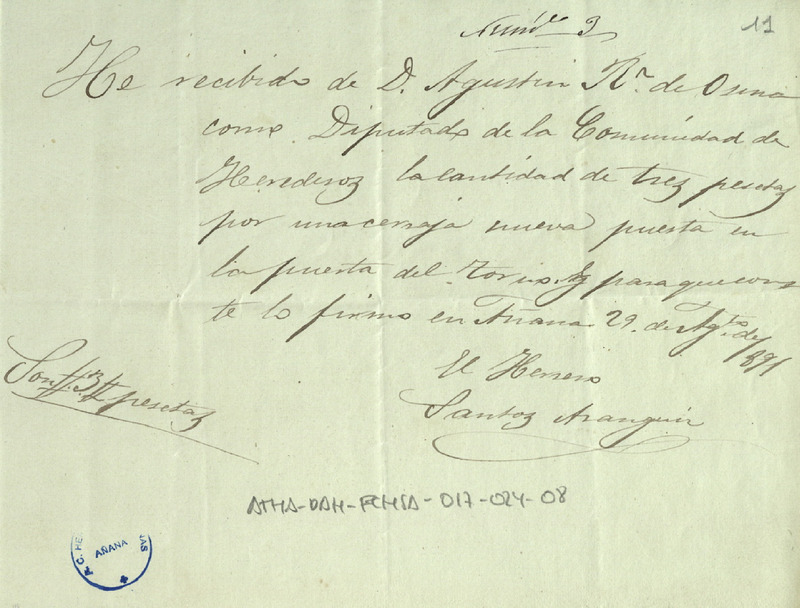 Núm.º 3
11
He recibido de D. Agustin R.n de Osma
como Diputado de la Comunidad de
Herederoz la cantidad de trez pesetaz
por una cerraja nueva puesta en
la puesta del Torno. Y para que cons
te lo firmo en Añana 29 de Ag.to de /891
El Herrero
Santoz Aranguiz
Son # 3 # pesetaz
ATHA-DAH-FCHSA-017-024-08
A. C. HE
JAS
AÑANA